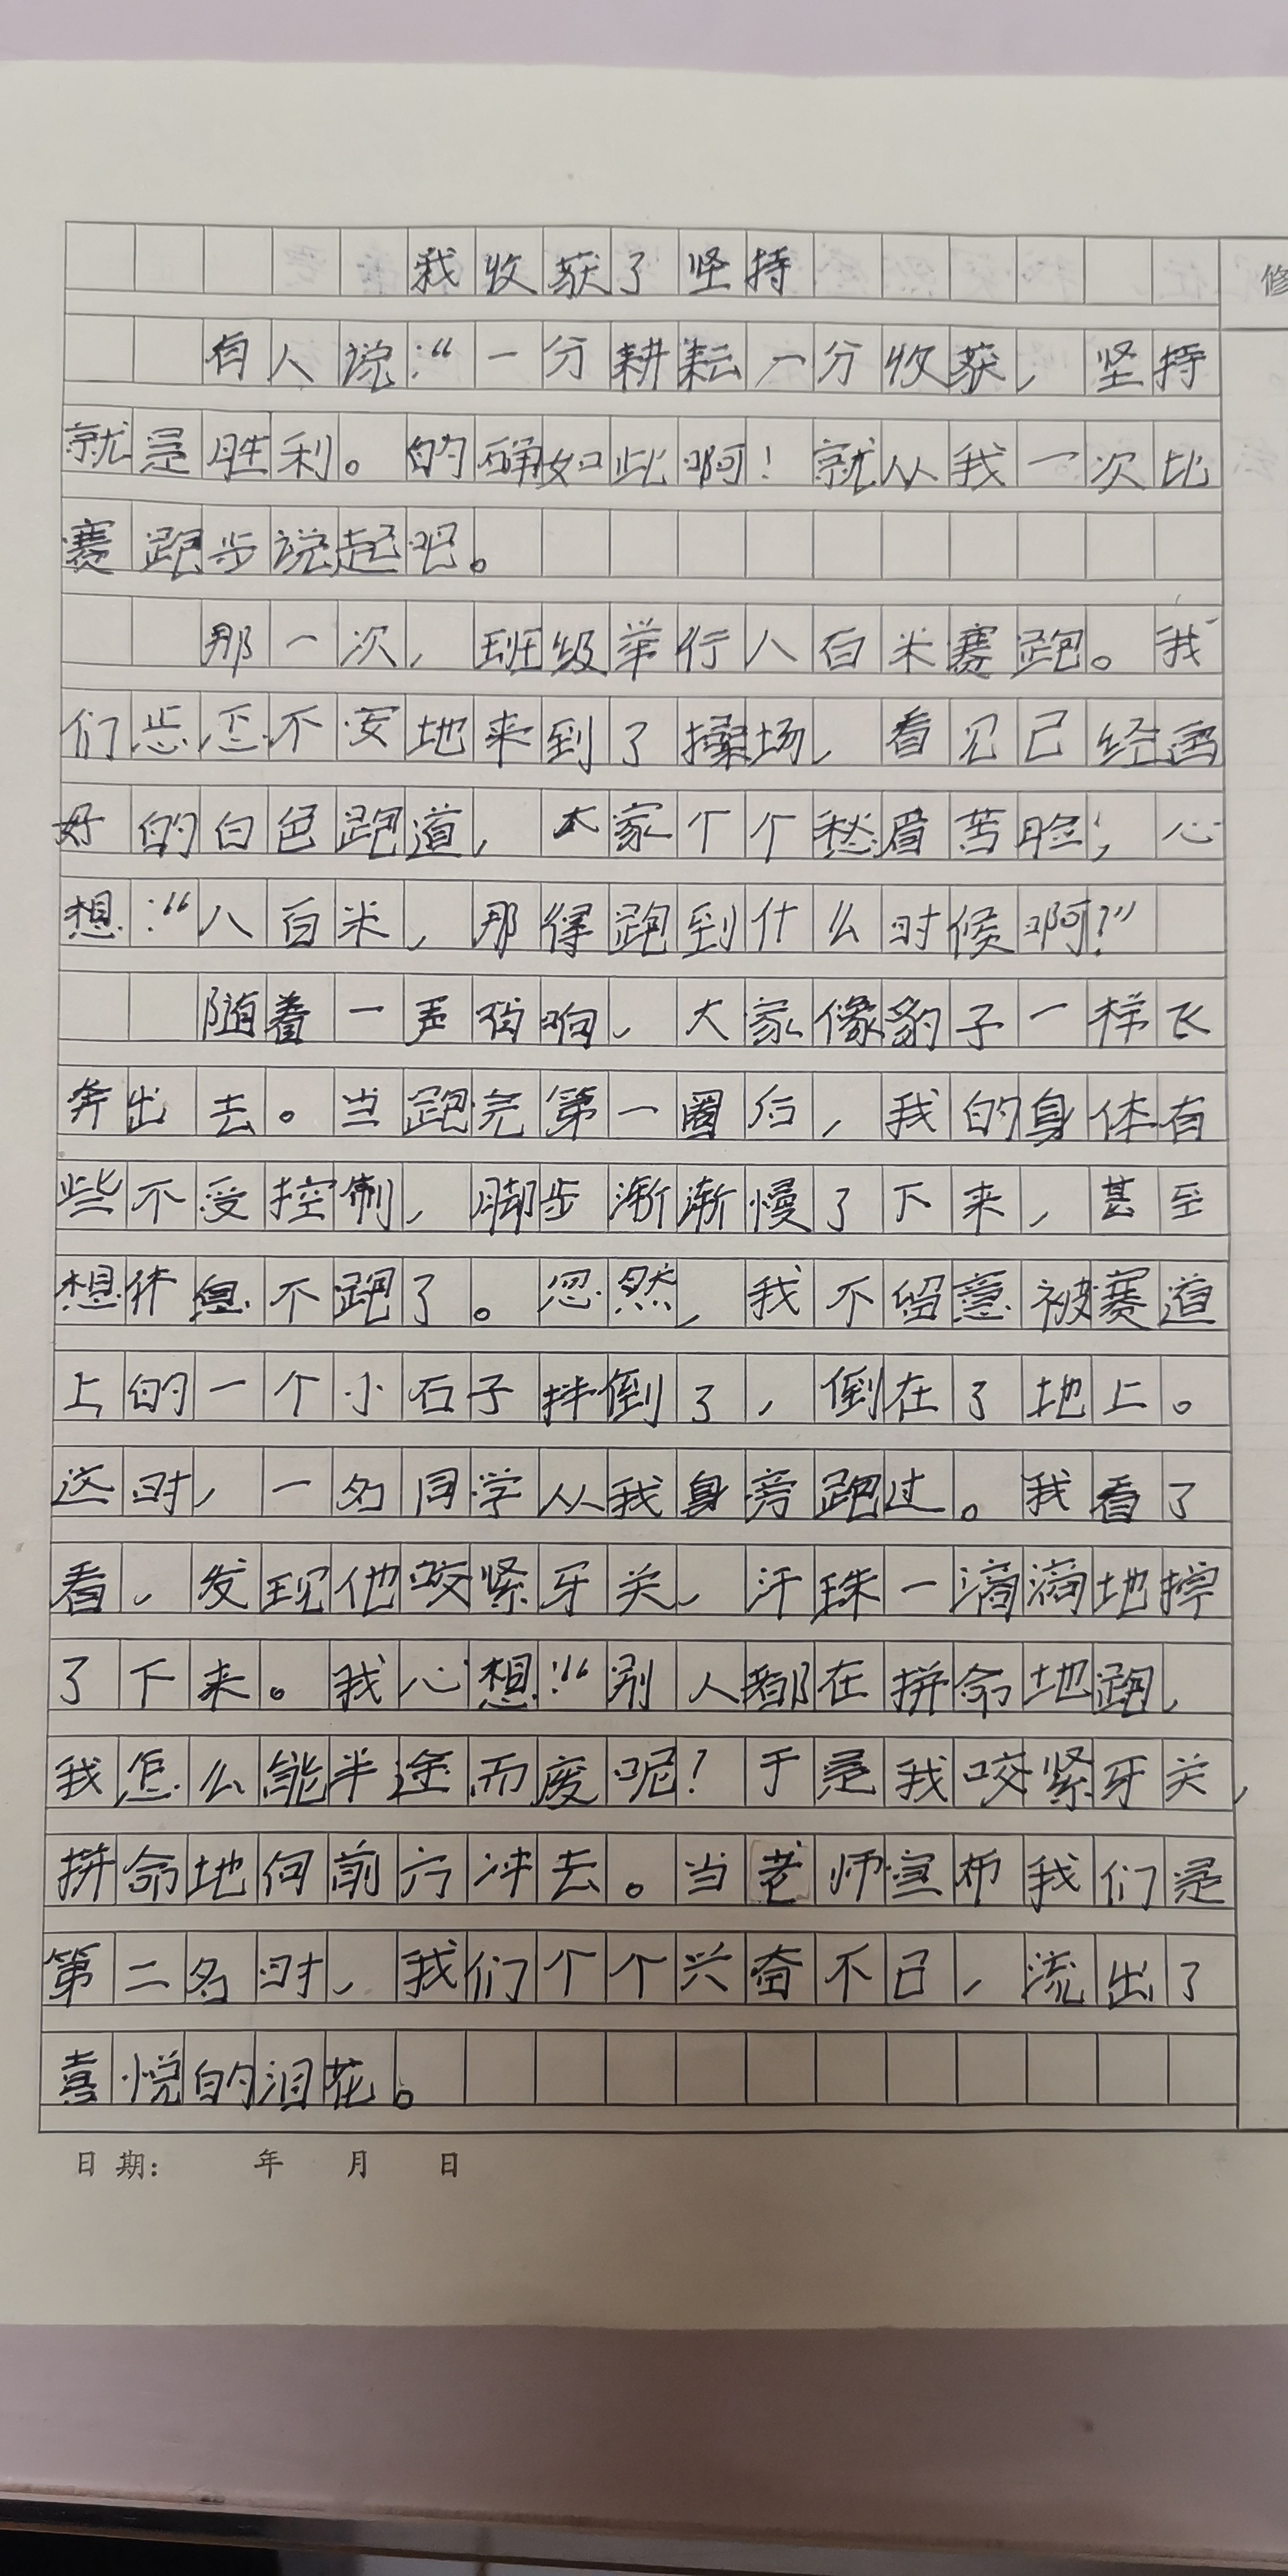 我收获了坚持
修
有人说:“一分耕耘一分收获,坚持
就是胜利。的确如此啊!就从我一次比
赛跑步说起吧。
那一次,班级举行八百米赛跑。我
们忐忑不安地来到了操场,看见已经画
好的白色跑道,大家个个愁眉苦脸;心
想:“八百米,那得跑到什么时候啊?”
随着一声哨响,大家像豹子一样飞
奔出去。当跑完第一圈后,我的身体有
些不受控制,脚步渐渐慢了下来,甚至
想休息不跑了。忽然,我不留意被赛道
上的一个小石子拌倒了,倒在了地上。
这时,一名同学从我身旁跑过。我看了
看,发现他咬紧牙关,汗珠一滴滴地掉
了下来。我心想:“别人都在拼命地跑,
我怎么能半途而废呢?于是我咬紧牙关,
拼命地向前方冲去。当老师宣布我们是
第二名时,我们个个兴奋不已,流出了
喜悦的泪花。
日期: 年 月 日